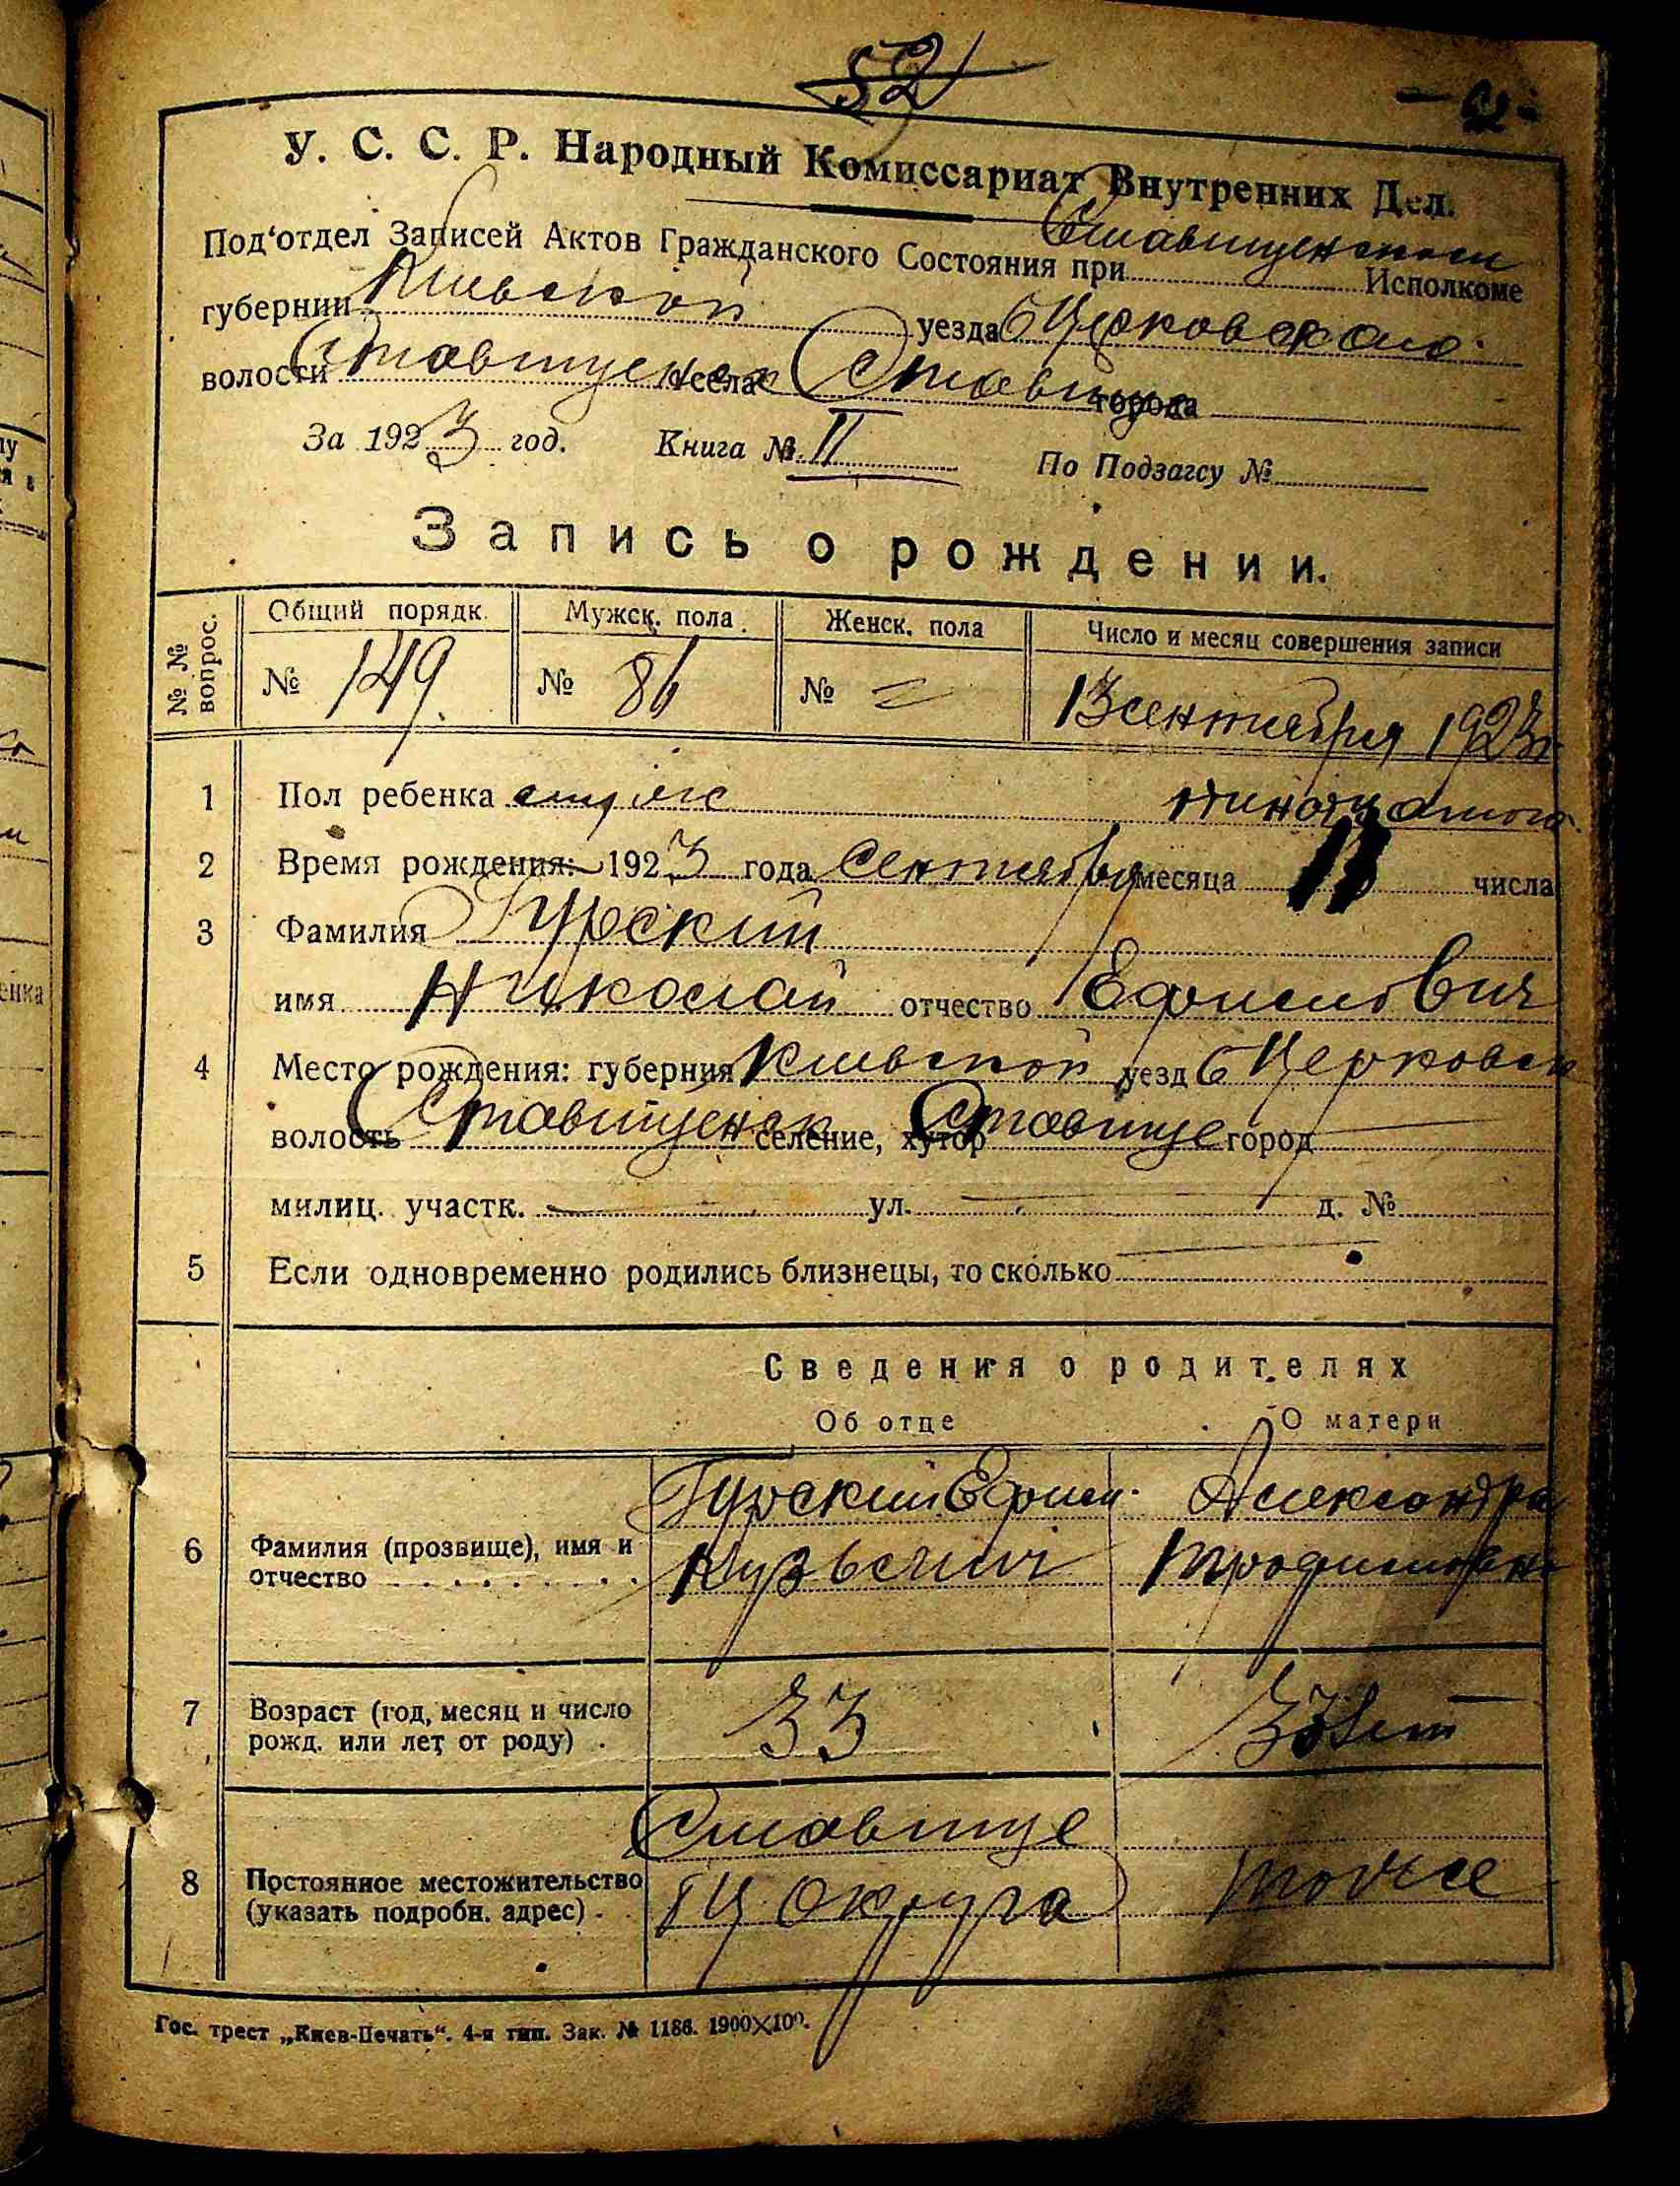 52
У. С. С. Р. Народный Комиссариат Внутренних Дел.
Под'отдел Записей Актов Гражданского Состояния при Ставищенском Исполкоме
губернии Киевской уезда БЦерковского
волости Ставищенск села Ставище города
За 1923 год. Книга № II По Подзагсу №
Запись о рождении.
№ № вопрос. Общий порядк. Мужск. пола Женск. пола Число и месяц совершения записи
№ 149. № 86 № 13 сентября 1923 г.
1 Пол ребенка муже
2 Время рождения: 1923 года Сентября месяца числа
3 Фамилия Гурский
имя Николай отчество Ефимович
4 Место рождения: губерния Киевской уезд БЦерковск
волость Ставищенск селение, хутор Ставище город
милиц. участк. ул. д. №
5 Если одновременно родились близнецы, то сколько
Сведения о родителях
Об отце О матери
Гурский Ефим Александра
6 Фамилия (прозвище), имя и
отчество Кузьмич Трофимовна
7 Возраст (год, месяц и число
рожд. или лет от роду) 33 лет
Ставище
8 Постоянное местожительство
(указать подробн. адрес) БЦ Округа тоже
Гос. трест „Киев-Печать“. 4-я тип. Зак. № 1186. 1900×100.